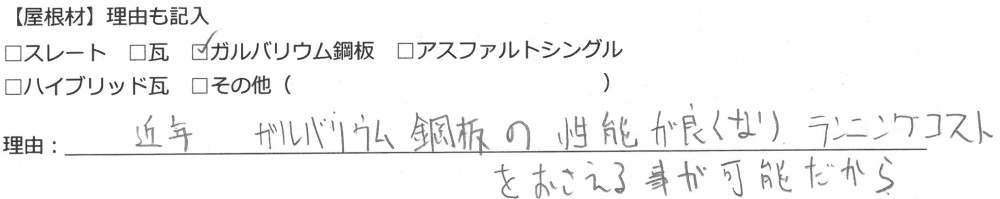 【屋根材】理由も記入
□スレート □瓦 ☑ガルバリウム鋼板 □アスファルトシングル
□ハイブリッド瓦 □その他（ ）
理由：近年 ガルバリウム鋼板の性能が良くなり ランニングコスト
をおさえる事が可能だから